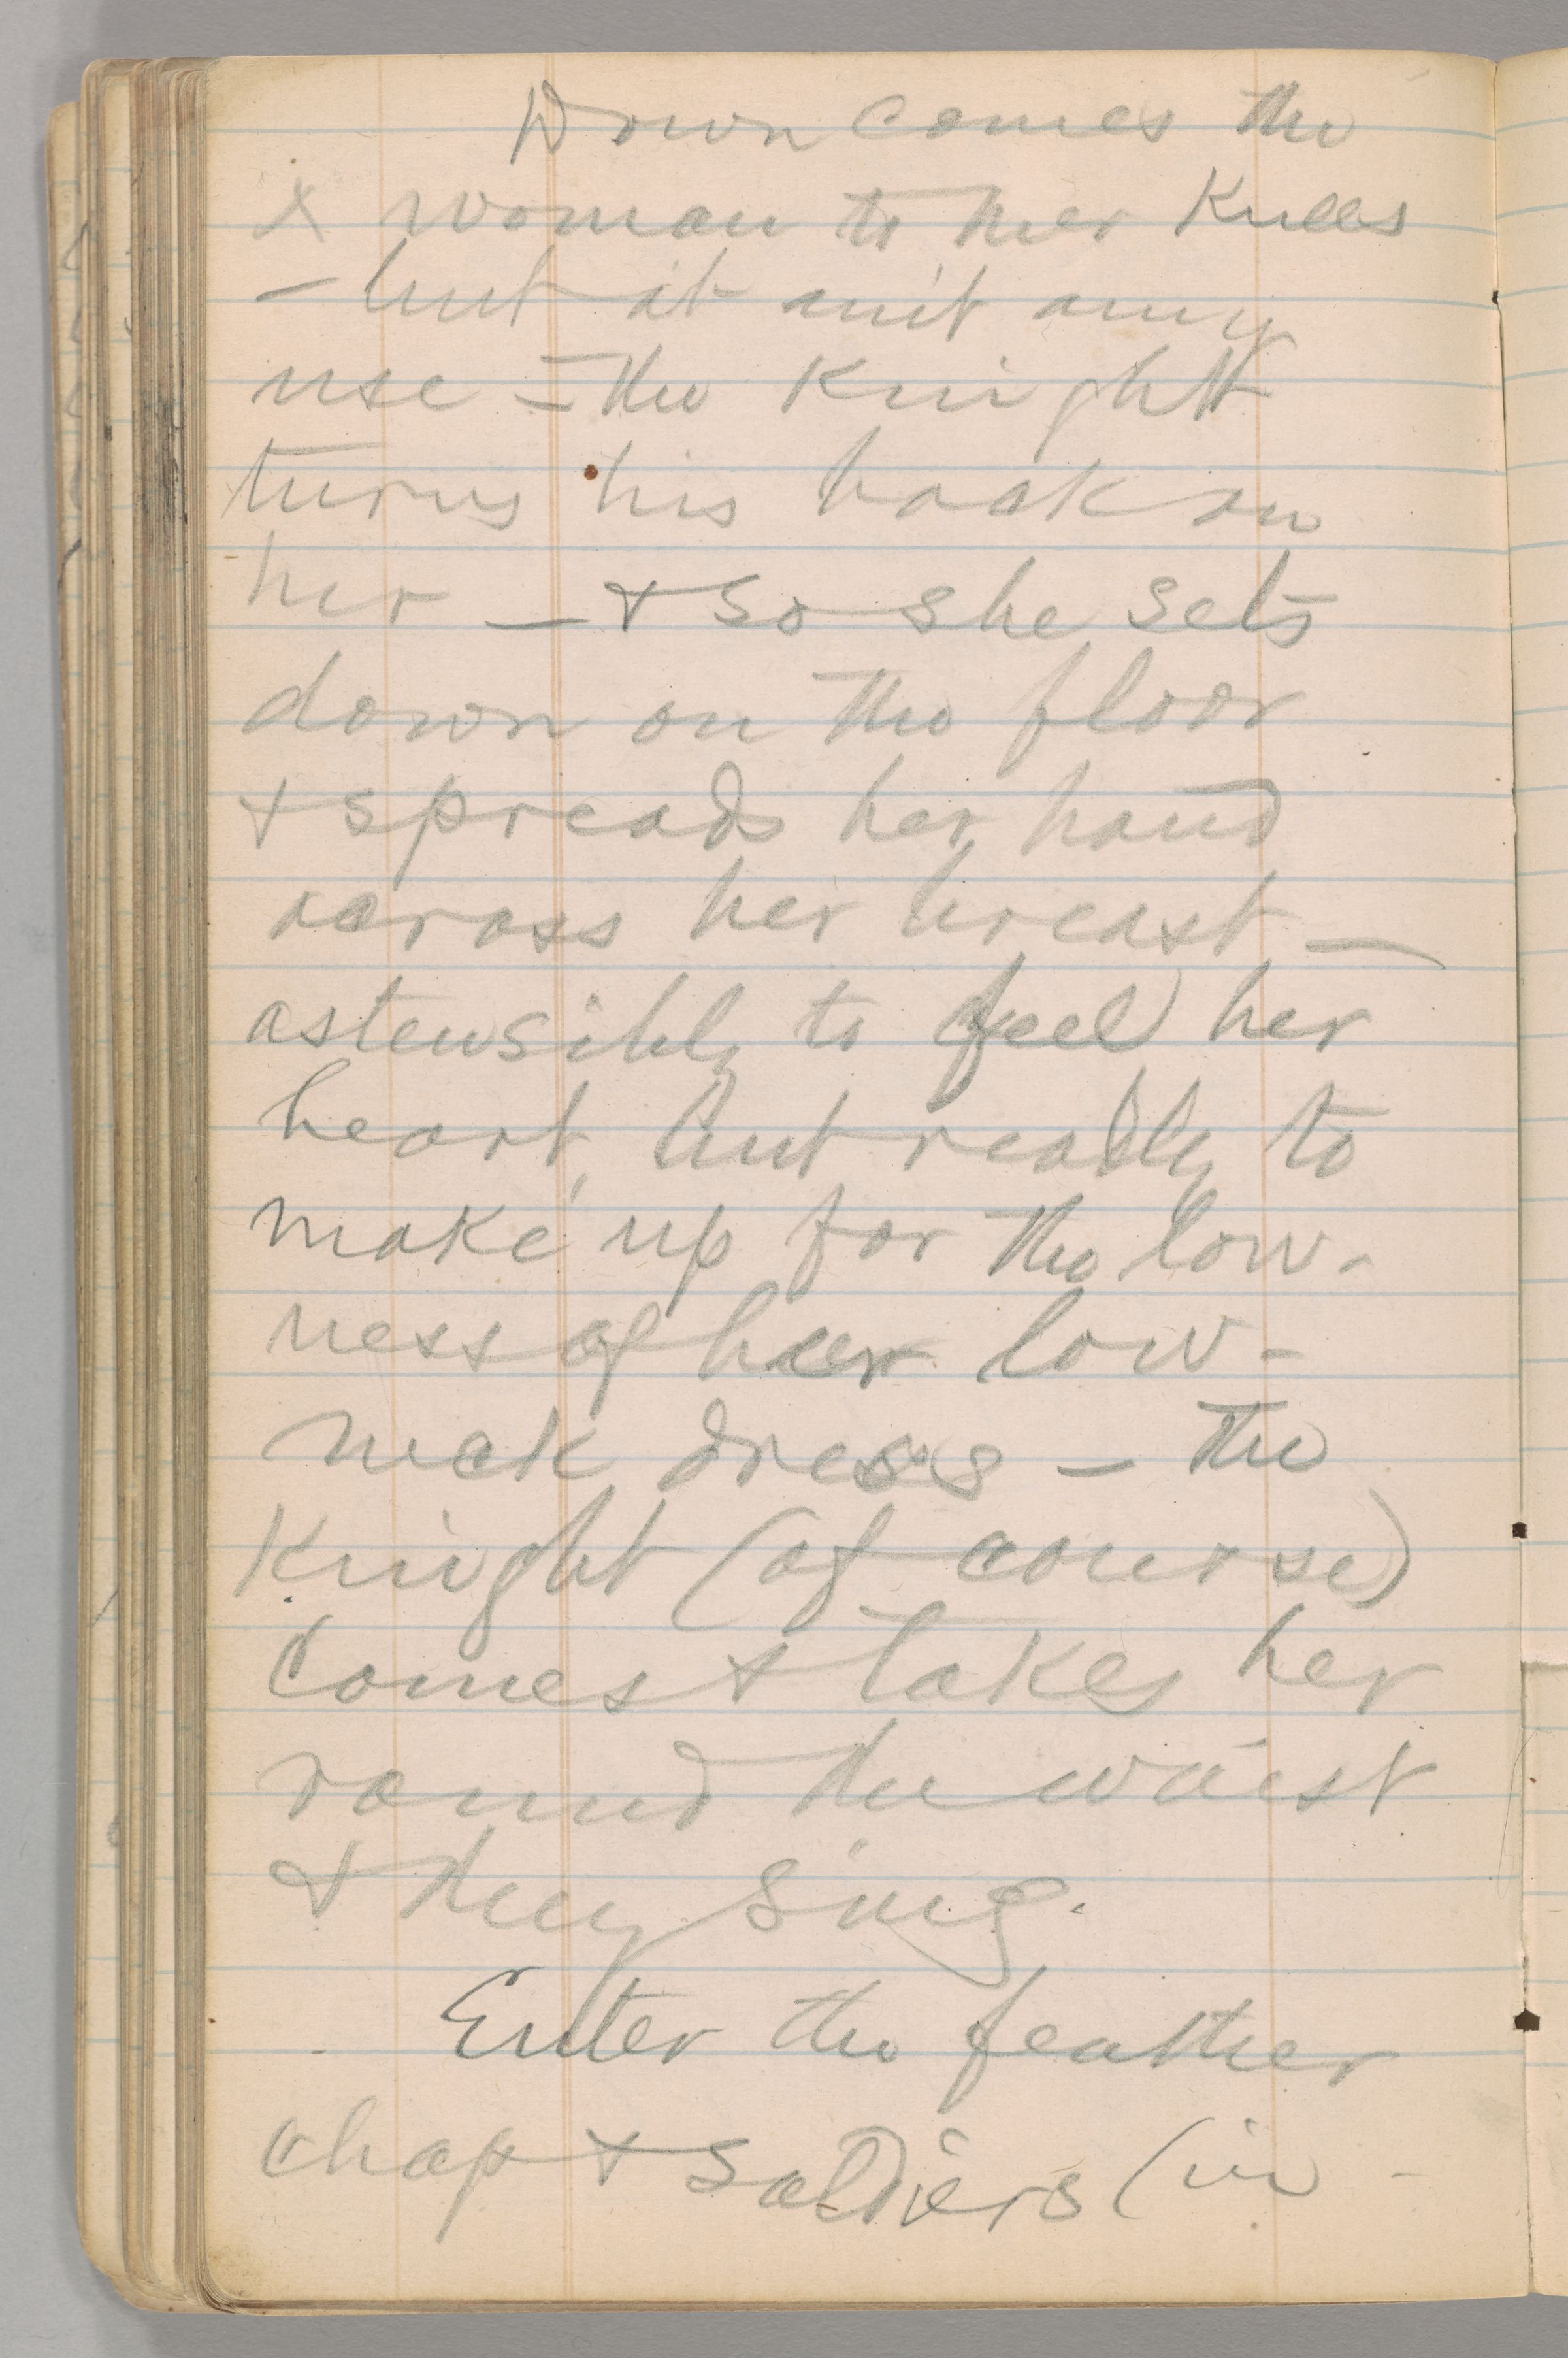 Down comes the
x woman to her Knees
– but it ain't any
use – the Knight
turns his back on
her – & so she sets
down on the floor
& spreads her hand
across her breast –
ostensibly to feel her
heart, but really to
make up for the low-
ness of her low-
neck dress – the
Knight (of course)
comes & takes her
round the waist
& they sing.
Enter the feather
chap & soldiers (in